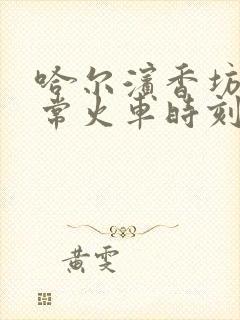 哈尔滨香坊
常火车时刻
黄雯